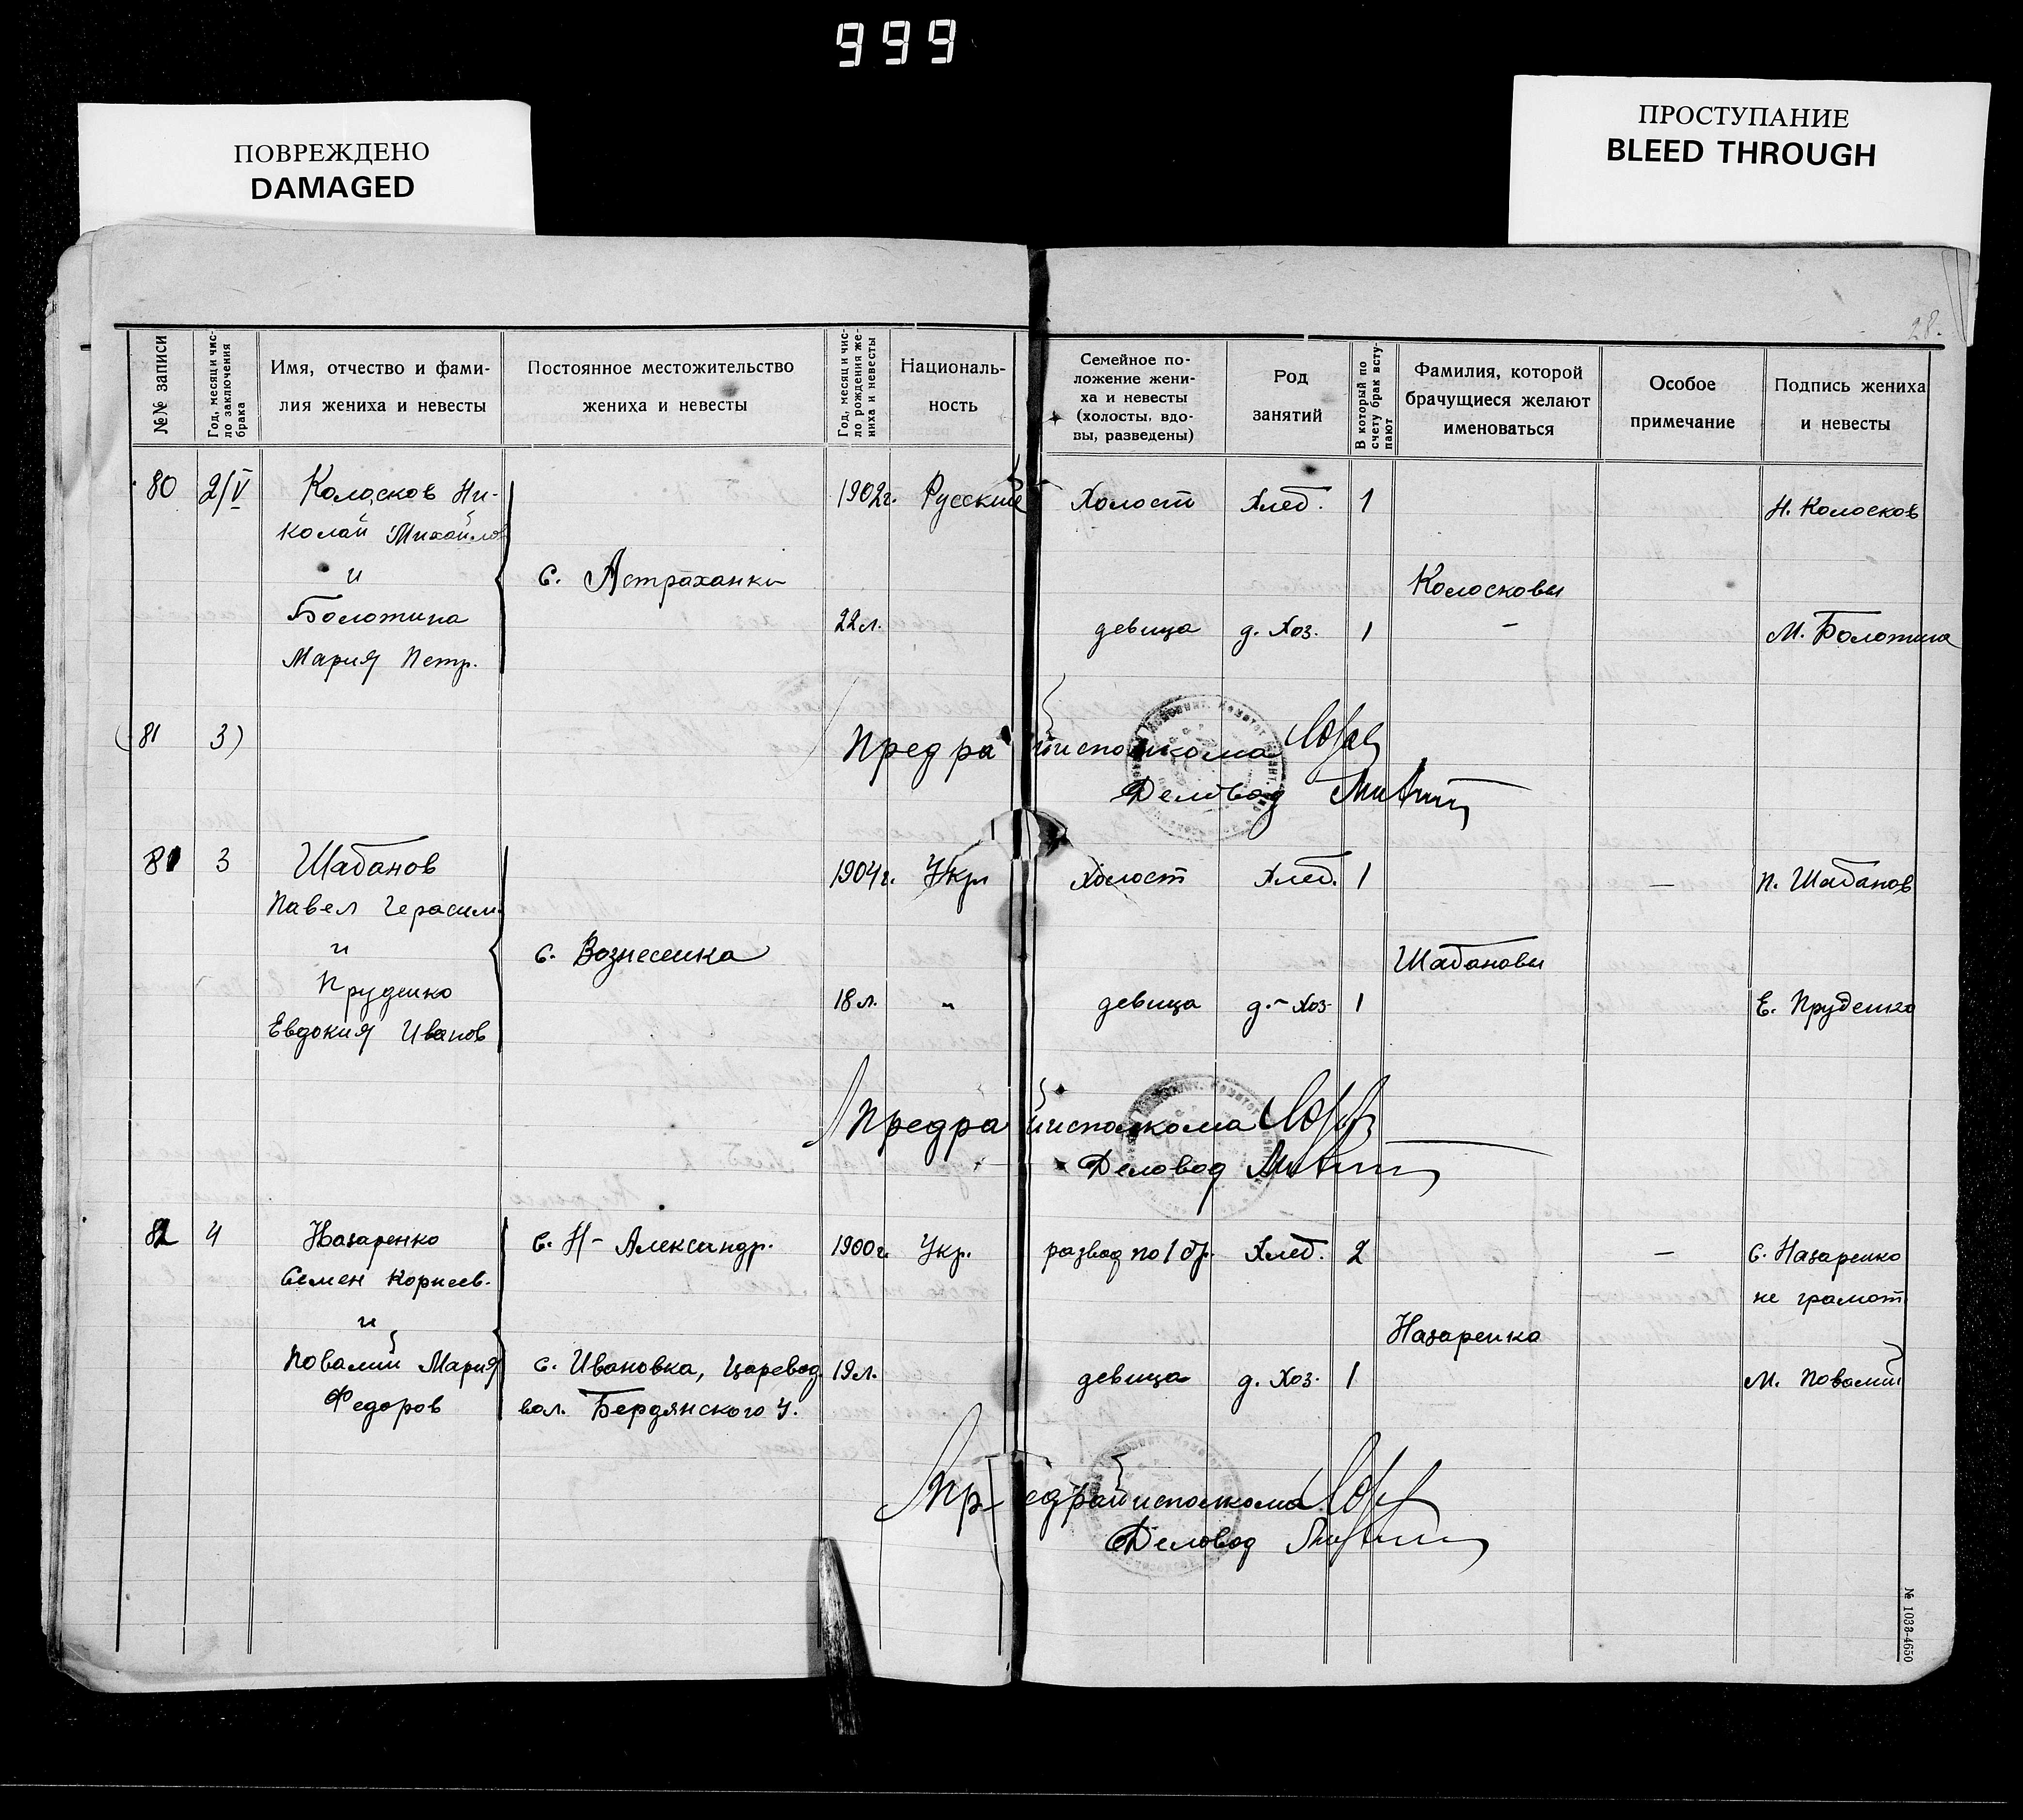 999
ПОВРЕЖДЕНО
DAMAGED
ПРОСТУПАНИЕ
BLEED THROUGH
28.
№№ записи
Год, месяц и чис-
ло заключения
брака
Имя, отчество и фами-
лия жениха и невесты
Постоянное местожительство
жениха и невесты
Год, месяц и чис-
ло рождения же-
ниха и невесты
Националь-
ность
Семейное по-
ложение жени-
ха и невесты
(холосты, вдо-
вы, разведены)
Род
занятий
В который по
счету брак всту-
пают
Фамилия, которой
брачущиеся желают
именоваться
Особое
примечание
Подпись жениха
и невесты
80 2/V Колосков Ни- 1902г. Русские Холост Хлеб. 1 Н. Колосков
колай Михайлов
и с. Астраханки Колосковы
Болотина 22л. девица д. Хоз. 1 - М. Болотина
Мария Петр.
(81 3) Предрайисполкома
Деловод
81 3 Шабанов 1904г. Укр Холост Хлеб. 1 — П. Шабанов
Павел Герасим.
и с. Вознесенка Шабановы
Пруденко 18л. " девица д.-хоз. 1 Е. Пруденко
Евдокия Иванов
Предрайисполкома
Деловод
82 4 Назаренко с. Н-Александр. 1900г. Укр. развод по 1 бр. Хлеб. 2 — С. Назаренко
Семен Корнеев. не грамот
и Назаренко
Повалий Мария с. Ивановка, Царевод. 19л. девица д. Хоз. 1 М. Повалий
Федоров вол. Бердянского У.
Предрайисполкома
Деловод
№ 1033-4650